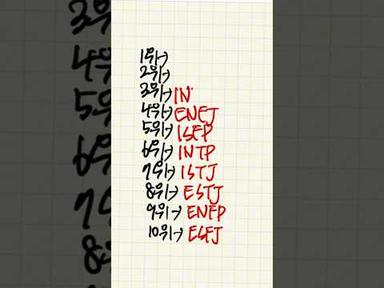 1위→
2위→
3위→ IN
4위→ ENFJ
5위→ ISFP
6위→ INTP
7위→ ISTJ
8위→ ESTJ
9위→ ENFP
10위→ ESFJ